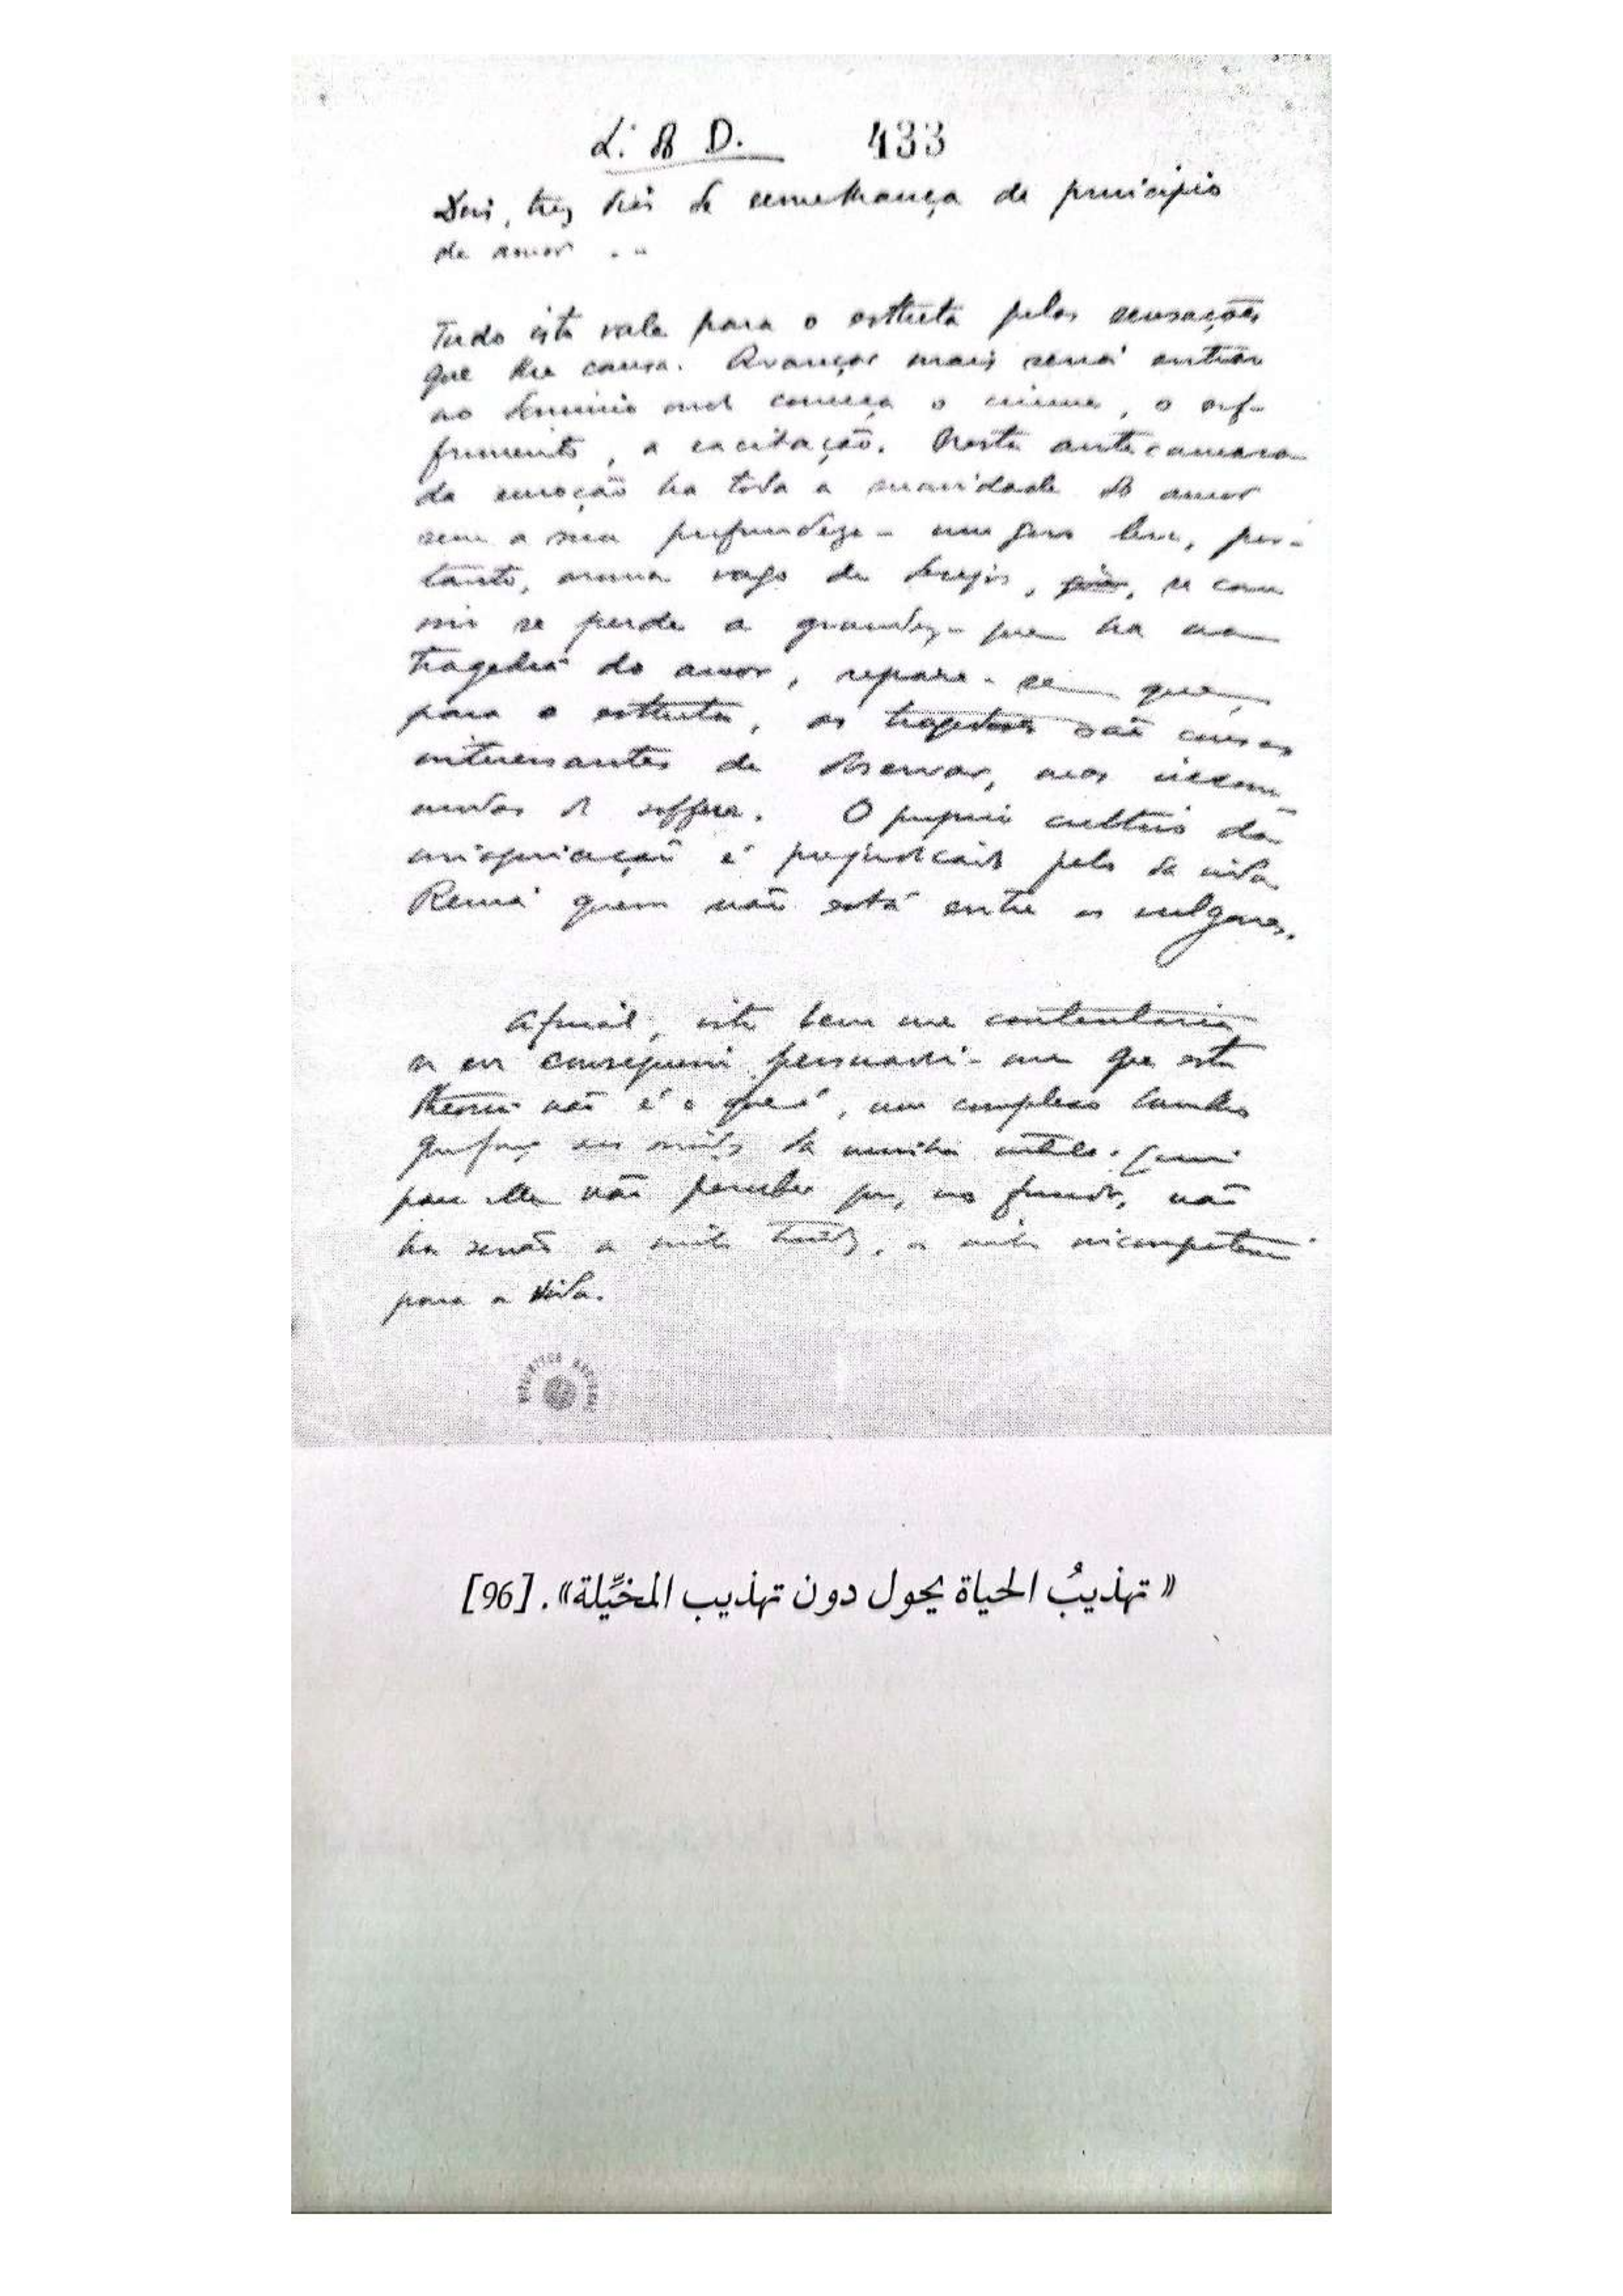 L. do D. 433
Dois, trez dias de semelhança de principio
de amor ...
Tudo isto vale para o estheta pelas sensações
que lhe causa. Avançar mais seria entrar
no dominio onde começa o ciume, o sof-
frimento, a excitação. Nesta antecamara
da emoção ha toda a suavidade do amor
sem a sua profundeza - um goso leve, por-
tanto, aroma vago de desejos, se com
isso se perde a grandeza que ha na
tragedia do amor, repare-se que,
para o estheta, as tragedias são cousas
interessantes de observar, mas incom-
modas de soffrer. O proprio cultivo da
imaginação é prejudicado pelo da vida.
Reina quem não está entre os vulgares.
Afinal, isto bem me contentaria
se eu conseguisse persuadir-me que esta
theoria não é o que é, um complexo barulho
que faço aos ouvidos da minha
para ella não perceber que, no fundo, não
ha senão a minha timidez, a minha incompetencia
para a vida.
« تهذيبُ الحياة يحول دون تهذيب المخيِّلة». [96]